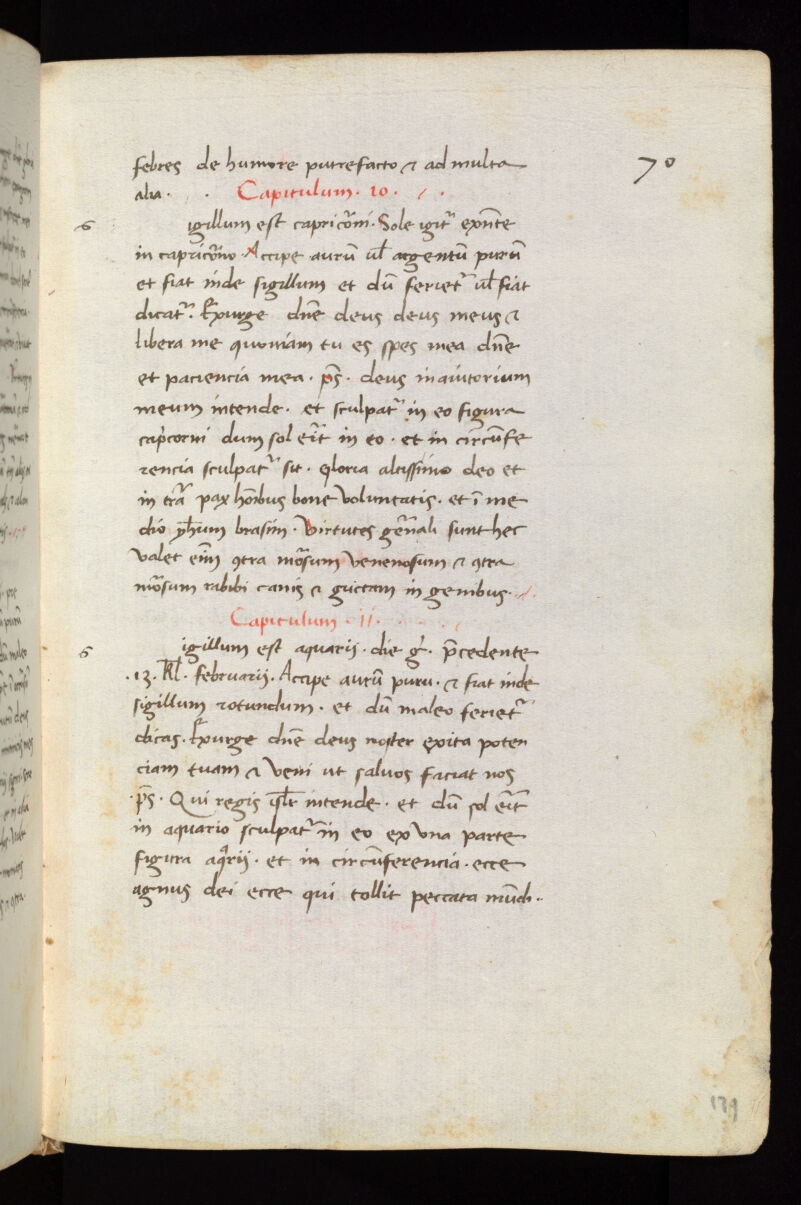 70
febres de humore putrefacto ⁊ ad multa
alia.
Capitulum. 10.
s
igillum est capricōrni. Sole igit᷑ exn̄te
in capricōrno. Accipe aurū ul̄ argentū purū
et fiat inde sigillum et dū feriet᷑ ul̄ fiat
dicat᷑. Exurge dn̄e deus deus meus ⁊
libera me quoniam tu es spes mea dn̄e
et paciencia mea. ps̄. deus in aiutorium
meum intende. et sculpat᷑ in eo figura
cap̄corni dum sol er̄it in eo. et in circūfe
rencia sculpat᷑ sit. gloria altissimo deo et
in trā pax hōibus bone voluntatis. et ī me
dio yh̄um brasim. Virtutes gēnali sunt hec
valet eīm ꝯtra mōsum venenosum ⁊ ꝯtra
mōsum rabibi canis ⁊ guttam in genibus.
Capitulum. 11.
s
igillum est aquarii. die ḡ. p̄cedente
.13. kl̄. februarii. Accipe aurū puru. ⁊ fiat inde
sigillum rotundum. et dū maleo feriet᷑
dicas. Exurge dn̄e deus noster exita poten
ciam tuam ⁊ veni ut salvos faciat nos
.ps̄. Qui regis isl̄r intende. et dū sol er̄it
in aquario sculpat᷑ in eo ex una parte
figura aq̄rii. et in circūferencia. ecce
agnus dei ecce qui tollit peccata mūdi..
139